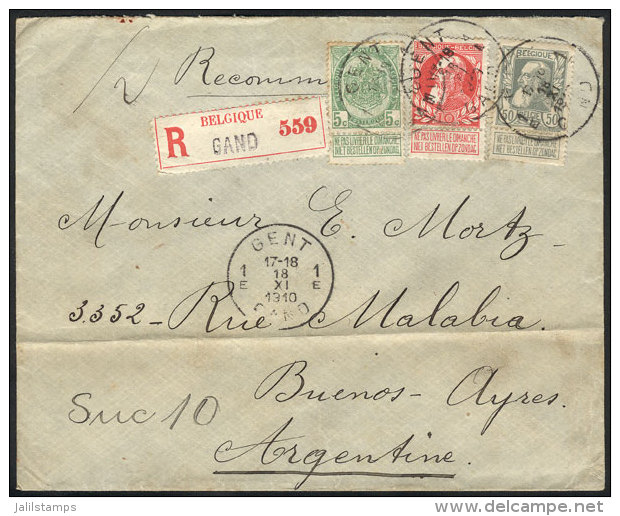 Recomm
BELGIQUE
R GAND 559
5c 5c
NE PAS LIVRER LE DIMANCHE
NIET BESTELLEN OP ZONDAG
BELGIQUE-BELGIË
10
NE PAS LIVRER LE DIMANCHE
NIET BESTELLEN OP ZONDAG
BELGIQUE
50 50
NE PAS LIVRER LE DIMANCHE
NIET BESTELLEN OP ZONDAG
GENT
GENT
Monsieur E. Mortz
GENT
17-18
1 18 1
E XI E
1910
GAND
3352 - Rue Malabia.
Buenos-Ayres.
Suc 10
Argentine.
jalilstamps
delcampe.net